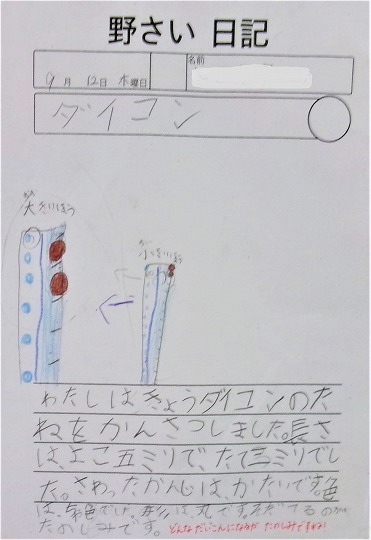 野さい 日記
9月 12日 木曜日
名前
ダイコン
大きいほう
小さいほう
わたしはきょうダイコンのた
ねをかんさつしました。長さ
は、よこ五ミリで、たて三ミリでし
た。さわったかんじは、かたいです。色
は、茶色です。形は丸です。そだてるのが
たのしみです。
どんなだいこんになるか たのしみですね!